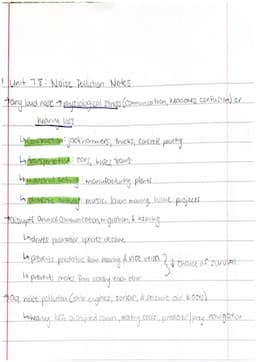 ! Unit 7.8: Noise Pollution Notes
→ any loud noise → physiological stress (communication, headaches, confusion) or
hearing loss
↳ construction: jackhammers, trucks, concrete
↳ transportation: cars, trains
↳ industrial activity: manufacturing plants
↳ domestic activity: music, lawn mowing, home projects
→ disrupts animal communication, migration, & hearing
↳ drives species decline
↳ prevents predator from hearing & vice versa } ↓ chance of survival
↳ prevents mates from each other
→ aq noise pollution (ship engines, sonar, & seismic air blasts)
↳ hearing loss, disrupted comm, mating calls, predator/prey, navigation